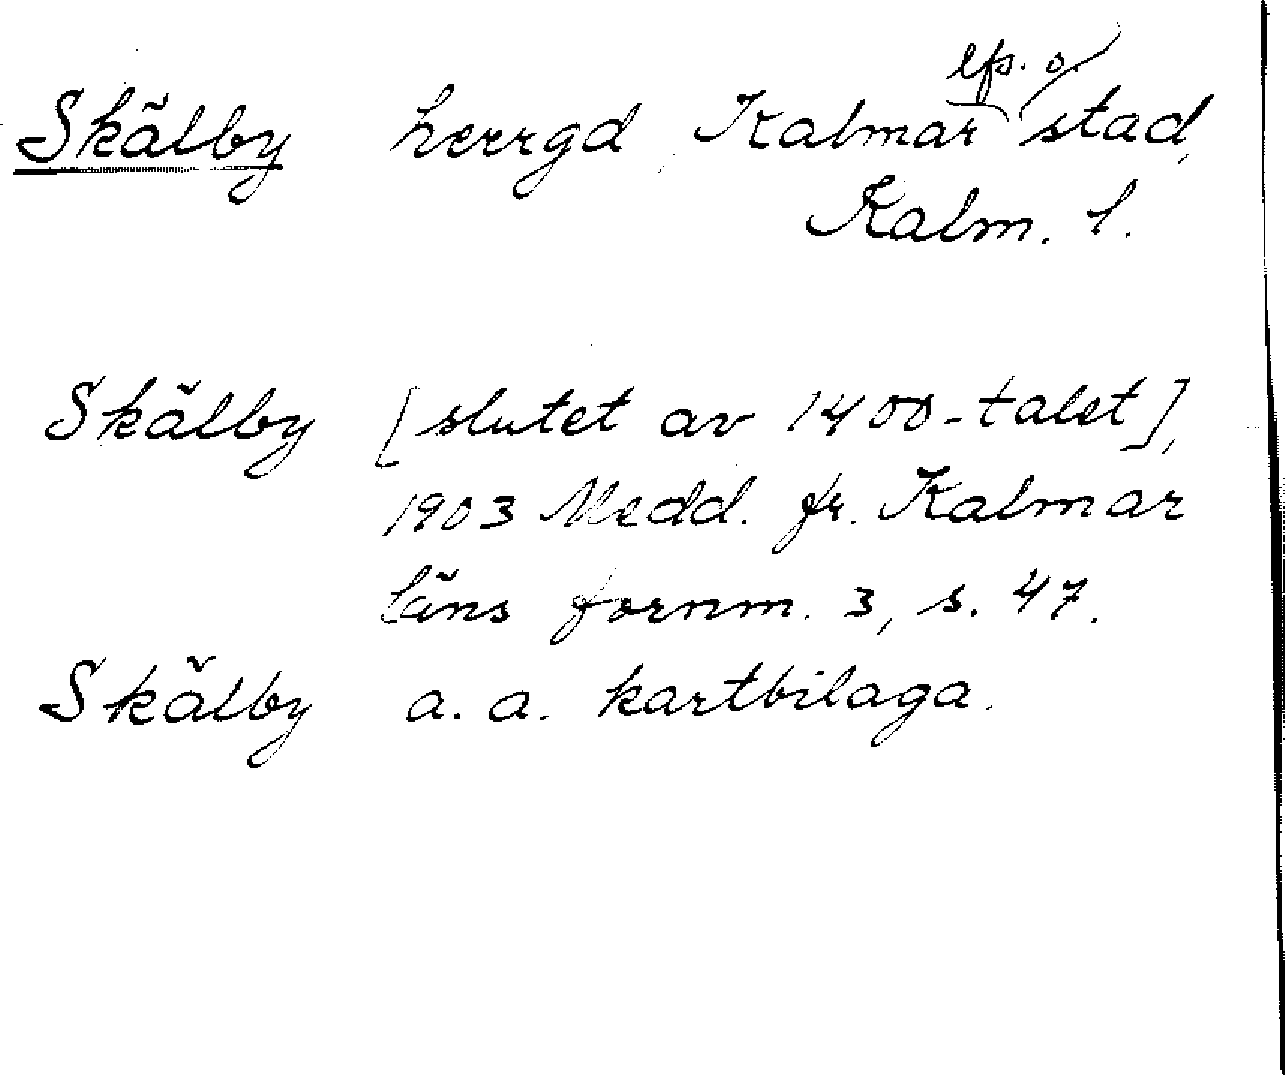 lfs. o.
Skälby herrgd, Kalmar stad,
Kalm. l.
Skälby [slutet av 1400-talet],
1903 Medd. fr. Kalmar
läns fornm. 3, s. 47.
Skälby a. a. kartbilaga.